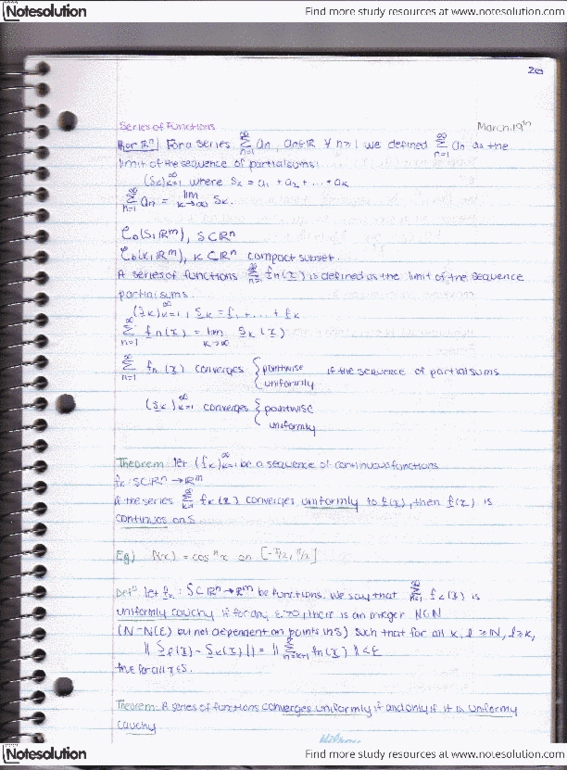 Notesolution Find more study resources at www.notesolution.com
20
Series of Functions March 19th
For ℝⁿ For a series ∑_{n=1}^∞ aₙ, aₙ∈ℝ ∀ n≥1 we defined ∑_{n=1}^∞ aₙ as the
limit of the sequence of partial sums:
(Sₖ)_{k=1}^∞ where Sₖ = a₁ + a₂ + ... + aₖ
∑_{n=1}^∞ aₙ = lim_{k→∞} Sₖ.
C_b(S, ℝᵐ), S⊂ℝⁿ
C_b(K, ℝᵐ), K⊂ℝⁿ compact subset.
A series of functions ∑_{n=1}^∞ fₙ(x) is defined as the limit of the sequence
partial sums.
(Sₖ)_{k=1}^∞, Sₖ = f₁ + ... + fₖ
∑_{n=1}^∞ fₙ(x) = lim_{k→∞} Sₖ(x)
∑_{n=1}^∞ fₙ(x) converges { pointwise if the sequence of partial sums
uniformly
(Sₖ)_{k=1}^∞ converges { pointwise
uniformly
Theorem: let (fₖ)_{k=1}^∞ be a sequence of continuous functions
fₖ: S⊂ℝⁿ → ℝᵐ
if the series ∑_{k=1}^∞ fₖ(x) converges uniformly to f(x), then f(x) is
continuous on S.
Eg) f(x) = cosⁿx on [-π/2, π/2]
Defⁿ let fₖ: S⊂ℝⁿ→ℝᵐ be functions. We say that ∑ fₖ(x) is
uniformly cauchy if for any ε>0, there is an integer N∈ℕ
(N=N(ε) but not dependent on points in S) such that for all k, l ≥ N, l≥k,
‖S_l(x) - Sₖ(x)‖ = ‖∑_{n=k+1} fₙ(x)‖ < ε
true for all x∈S.
Theorem: A series of functions converges uniformly if and only if it is uniformy
cauchy
Hilroy
Notesolution Find more study resources at www.notesolution.com